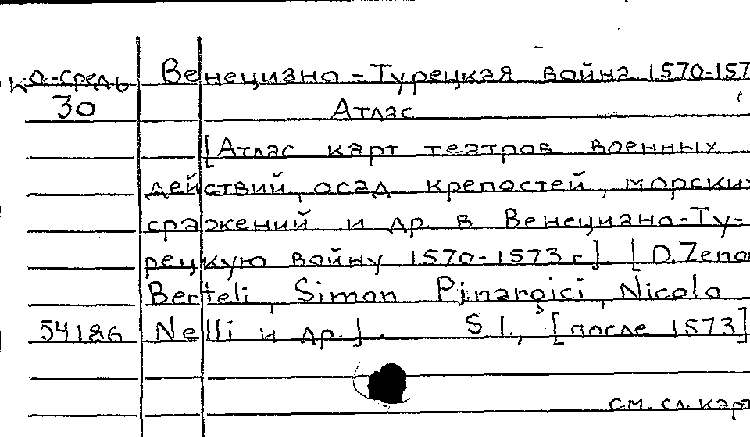 Ко-средь Венециано-Турецкая война 1570-157
30 Атлас
[Атлас карт театров военных
действий, осад крепостей, морских
сражений и др. в Венециано-Ту-
рецкую войну 1570-1573 г.]. [D. Zeno
Berteli, Simon Pinargici, Nicolo
54186 Nelli и др.]. S.l., [после 1573]
см. сл. карт